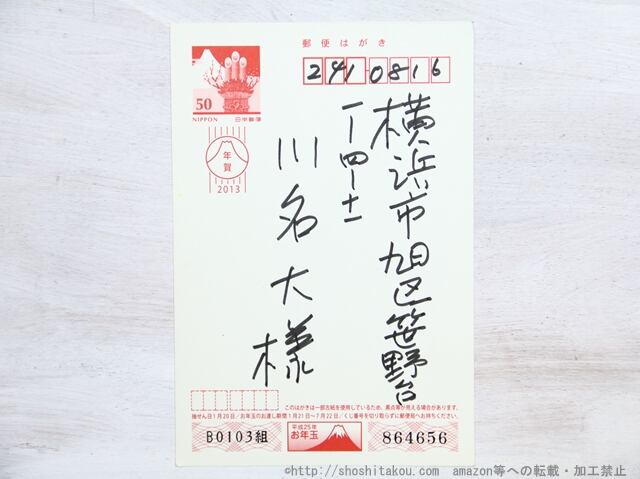 郵便はがき
50
NIPPON 日本郵便
241 0816
年賀
2013
横浜市旭区笹野台
一ー四ー十一
川名大様
このはがきは一部古紙を使用しているため、黒点等が見える場合があります。
抽せん日1月20日/お年玉のお渡し期間1月21日〜7月22日/くじ番号を切り取らずに郵便局へお持ちください。
B0103組
平成25年
お年玉
864656
©http://shoshitakou.com amazon等への転載・加工禁止